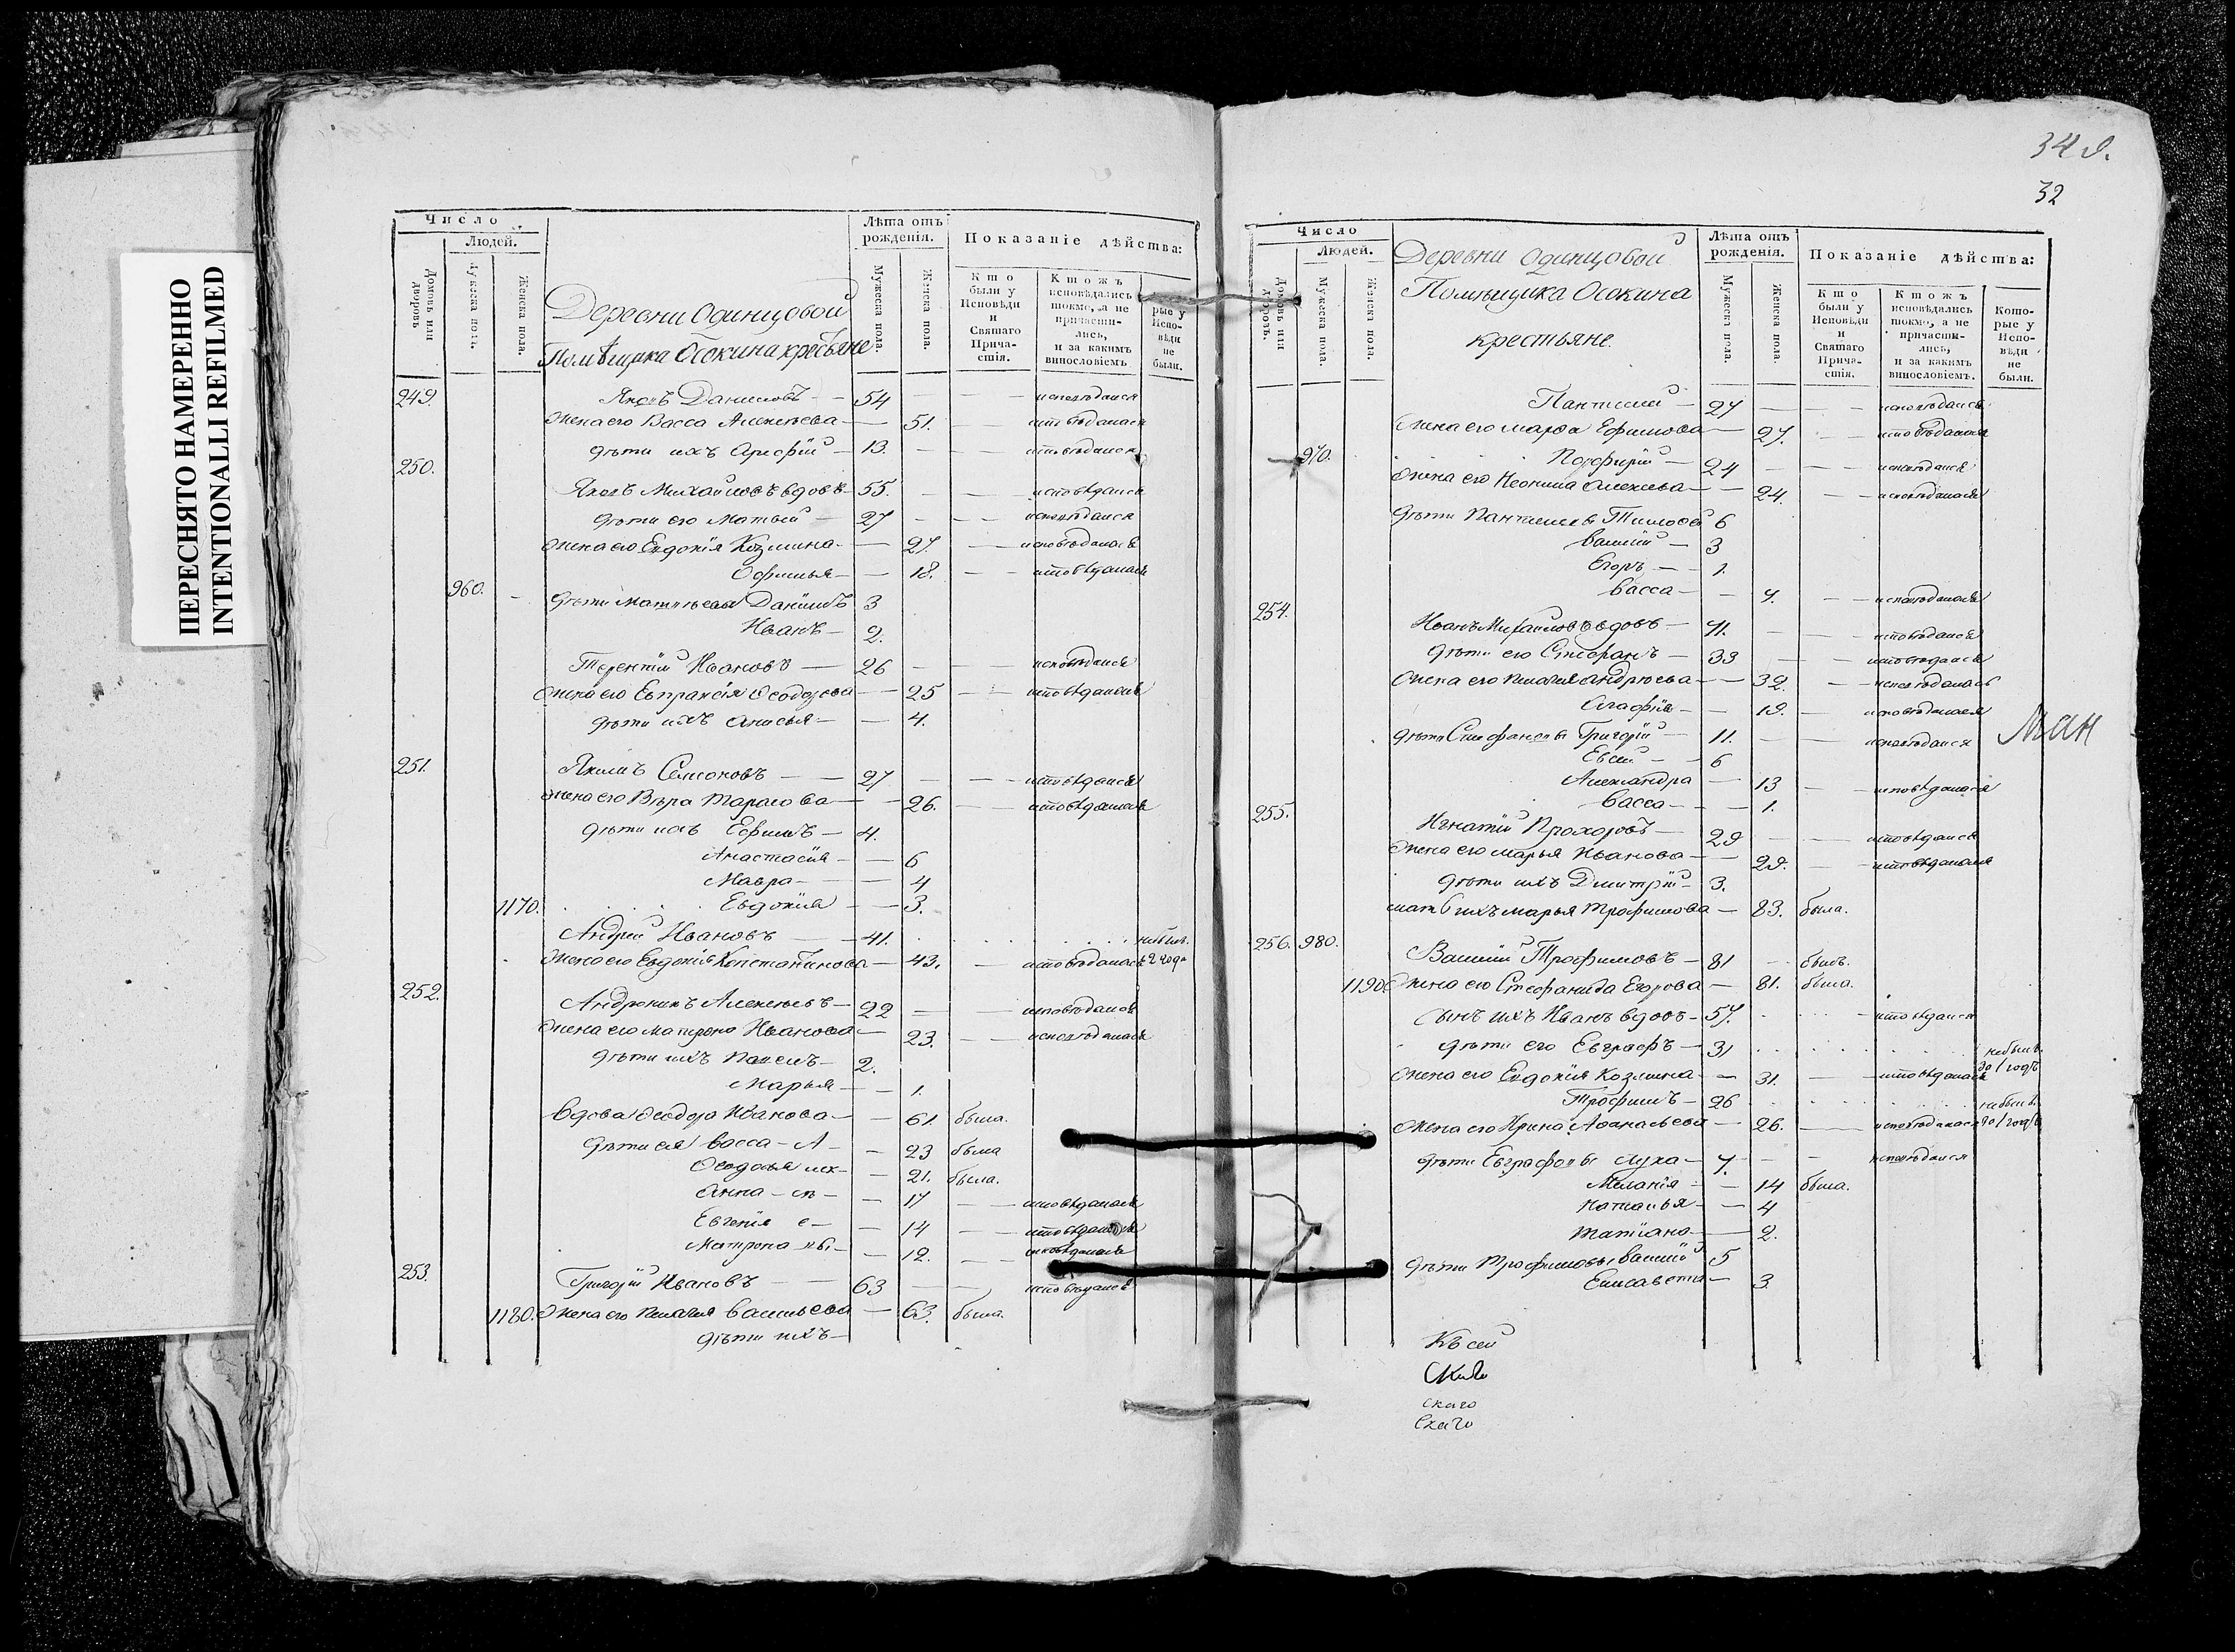 ПЕРЕСНЯТО НАМЕРЕННО
INTENTIONALLI REFILMED
Число
Людей.
Домовъ или дворовъ
Мужеска пола.
Женска пола.
Деревни Одинцовой
Помѣщика Осокина кресьяне
Лѣта отъ рожденія.
Мужеска пола.
Женска пола.
Показаніе дѣйства:
Кто были у Исповѣди и Святаго Причастія.
Ктожъ исповѣдались токмо, а не причастились, и за какимъ винословіемъ
рые у Исповѣди не были.
249. Яковъ Даниловъ — 54 — исповѣдался
Жена его Васса Алексѣева — 51. — исповѣдалась
дѣти ихъ Арефій — 13. — исповѣдался
250.
Яковъ Михайловъ вдовъ — 55. — исповѣдался
дѣти его Матвѣй — 27 — исповѣдался
Жена его Евдокія Козмина — 27. — исповѣдалась
Офимья — 18. — исповѣдалась
960. дѣти Матвѣевы Данилъ 3
Иванъ — 2.
Терентій Ивановъ — 26 — исповѣдался
Жена его Евпраксія Ѳеодорова — 25 — исповѣдалась
дѣти ихъ Анисья — 4.
251. Якимъ Семіоновъ — 27 — исповѣдался
Жена его Вѣра Тарасова — 26. — исповѣдалась
дѣти ихъ Ефимъ — 4.
Анастасія — 6
Мавра — 4
1170. Евдокія — 3.
Андрей Ивановъ — 41. небылъ.
Жена его Евдокія Констатинова — 43. — исповѣдалась 2 года
252. Андроникъ Алексѣевъ — 22 — исповѣдался
Жена его Матрона Иванова — 23. — исповѣдалась
дѣти ихъ Павелъ — 2.
Марья — 1.
Вдова Ѳеодора Иванова — 61. была.
дѣти ея Васса — 23 была
Ѳеодосья — 21. была.
Анна — 17 — исповѣдалась
Евгенія — 14 — исповѣдалась
Матрона — 12. — исповѣдалась
253. Григорій Ивановъ — 63 — исповѣдался
1180. Жена его Пелагія Васильева — 63. была.
дѣти ихъ —
349.
32
Число
Людей.
Домовъ или дворовъ.
Мужеска пола.
Женска пола.
Деревни Одинцовой
Помѣщика Осокина
крестьяне
Лѣта отъ рожденія.
Мужеска пола.
Женска пола.
Показаніе дѣйства:
Кто были у Исповѣди и Святаго Причастія.
Ктожъ исповѣдались токмо, а не причастились, и за какимъ винословіемъ.
Которые у Исповѣди не были.
Пантелей — 27 — исповѣдался
Жена его Марѳа Ефимова — 27. — исповѣдалась
970. Порфирій — 24 — исповѣдался
Жена его Неонила Алексѣева — 24. — исповѣдалась
дѣти Пантелеевы Тимоѳей 6
Василій — 3
Егоръ — 1.
Васса — 7. — исповѣдалась
254.
Иванъ Михайловъ вдовъ — 71. — исповѣдался
дѣти его Стефанъ — 33 — исповѣдался
Жена его Пелагія Андрѣева — 32. — исповѣдалась
Агафія — 19. — исповѣдалась
дѣти Стефановы Григорій — 11. — исповѣдался
Евсей — 6
Александра — 13 — исповѣдалася
255. Васса — 1.
Игнатій Прохоровъ — 29 — исповѣдался
Жена его Марья Иванова — 29. — исповѣдалася
дѣти ихъ Дмитрій — 3.
мать ихъ Марья Трофимова — 83. была.
256. 980. Василій Трофимовъ — 81 — былъ.
1190. Жена его Стефанида Егорова — 81. была.
Сынъ ихъ Иванъ вдовъ — 57. — исповѣдался
дѣти его Евграфъ — 31 небылъ.
Жена его Евдокія Козмина — 31. — исповѣдалась 1 годъ
Трофимъ — 26 небылъ.
Жена его Ирина Аѳанасьева — 26. — исповѣдалась 1 годъ
дѣти Евграфовы Лука — 7. — исповѣдался
Меланія — 14 была.
Наталья — 4
Татіана — 2.
дѣти Трофимовы Василій 5
Елисавета — 3
Ман
Къ сей
скаго
Скаго